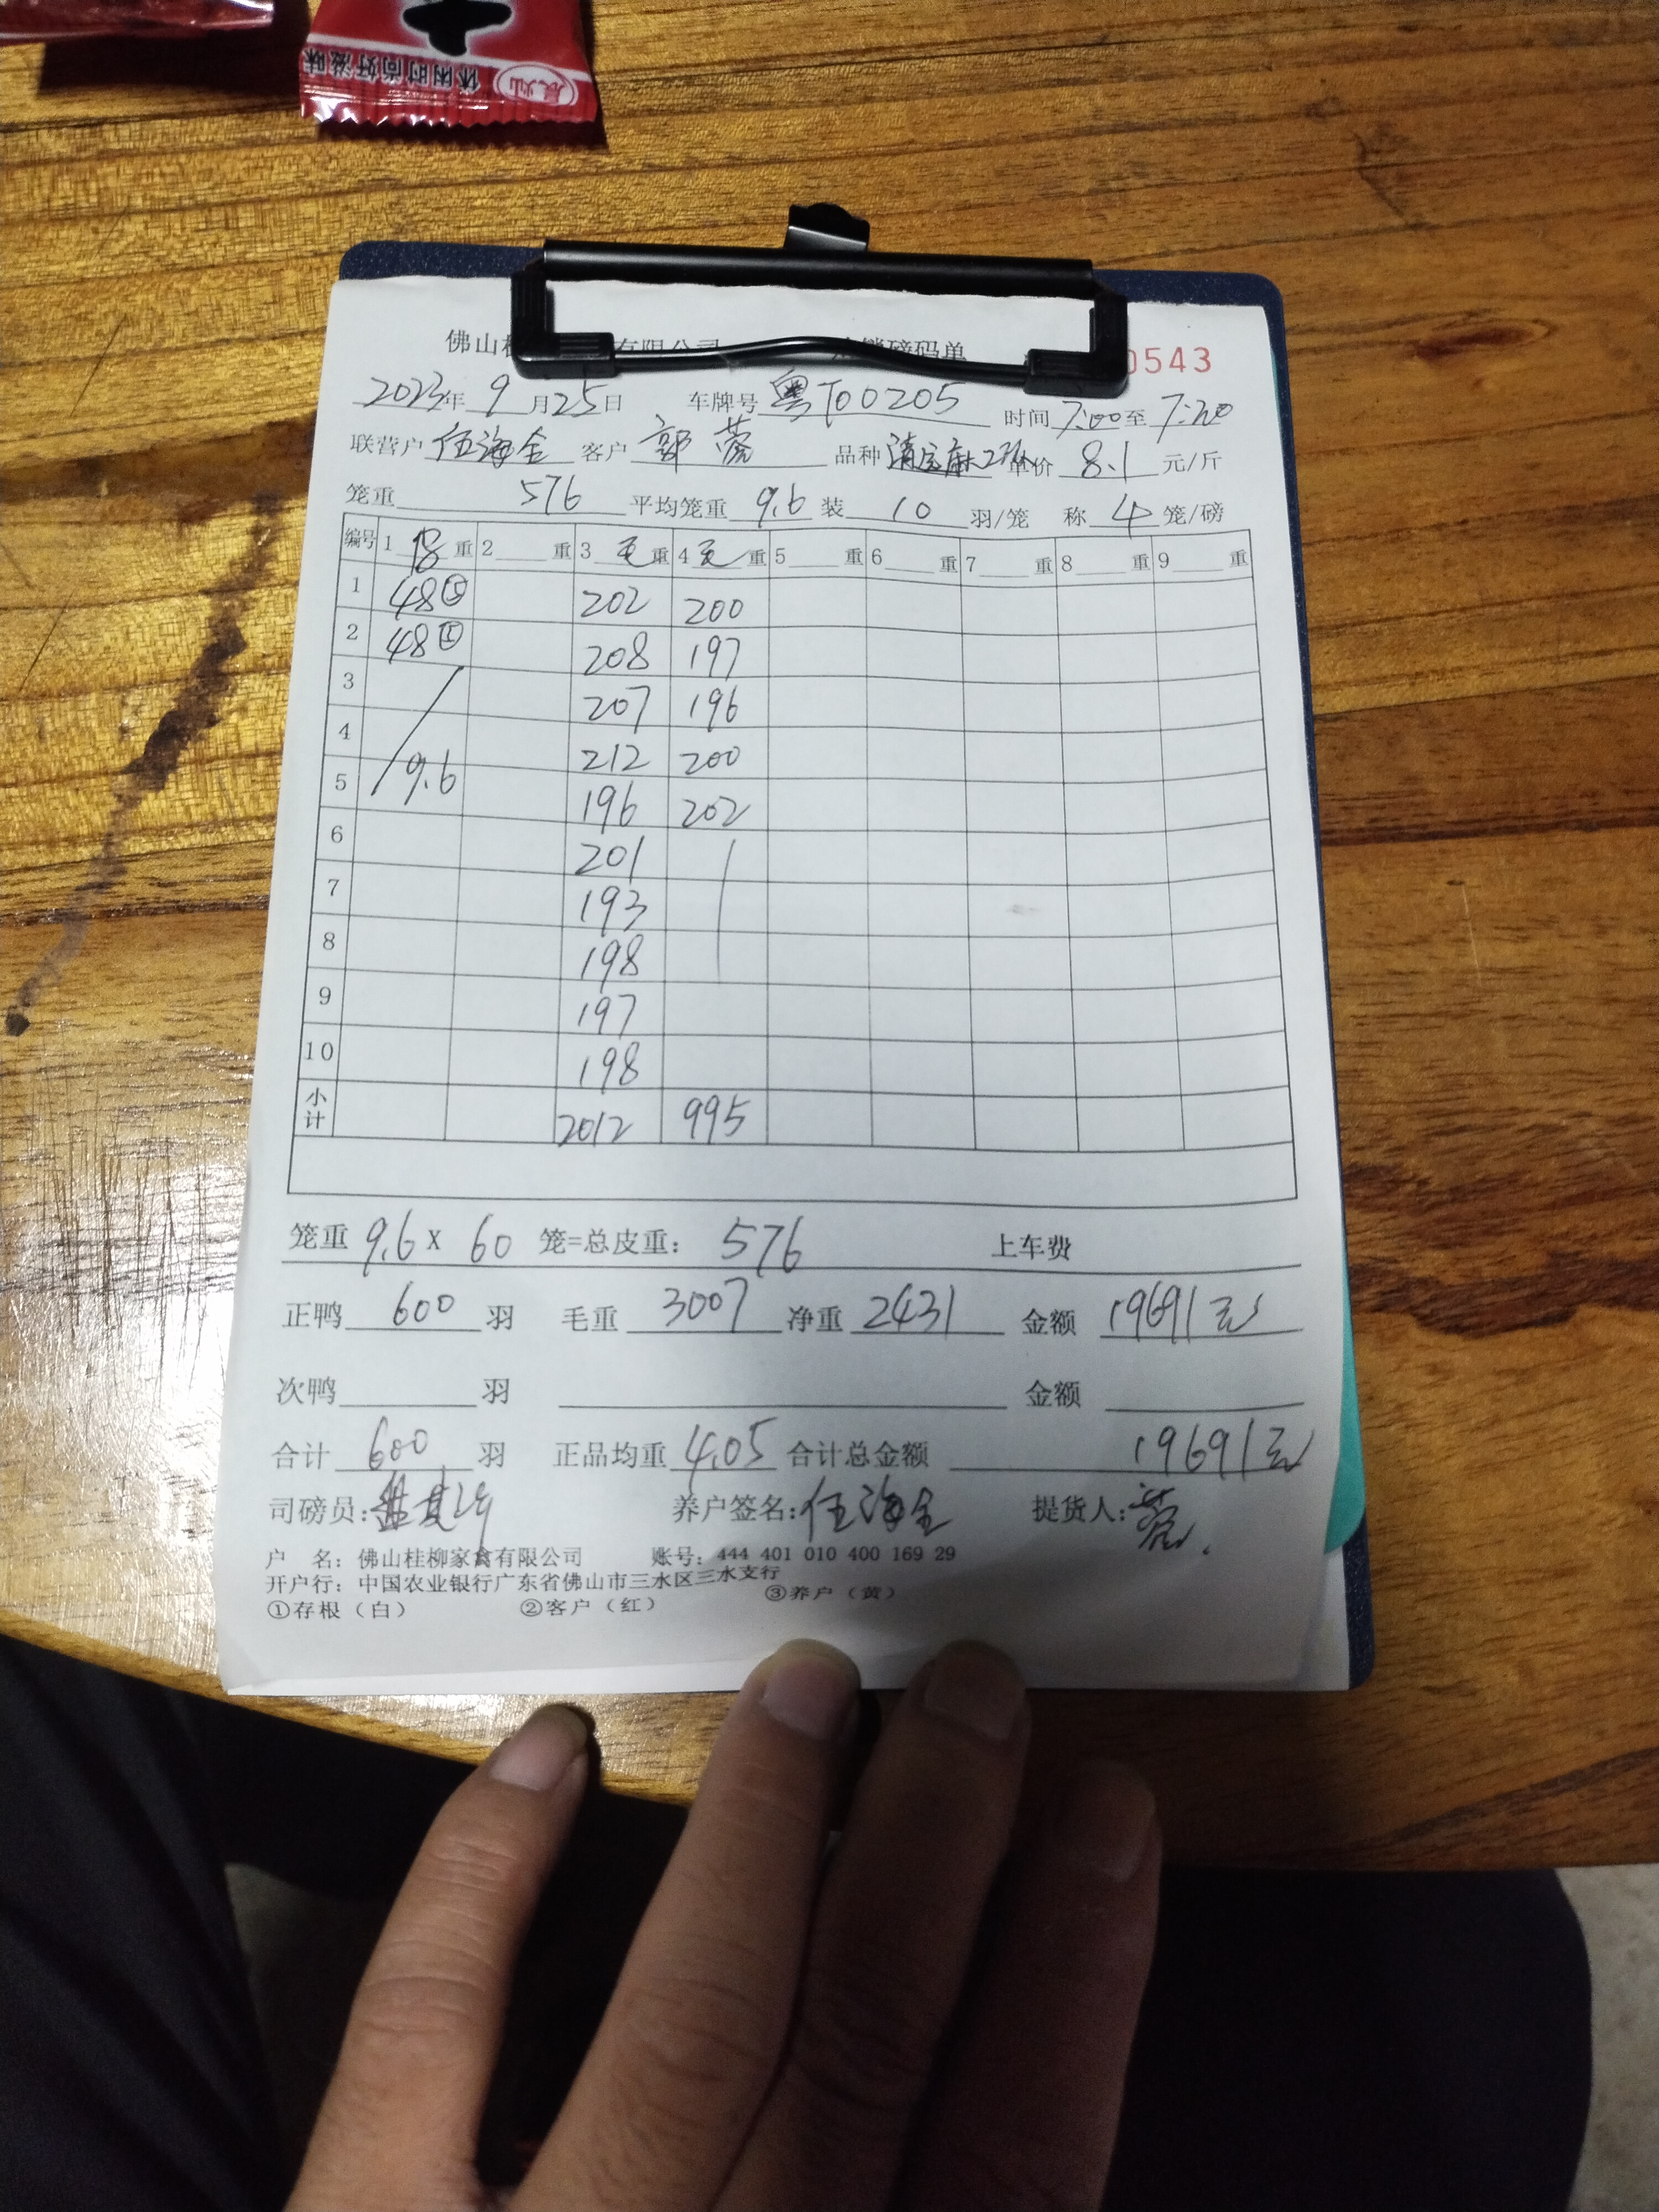 休闲时尚好滋味
佛山桂 有限公司 销磅码单 0543
2023年 9月25日 车牌号 粤T00205 时间 7:00至 7:20
联营户 伍海全 客户 郭蓉 品种 单价 8.1 元/斤
笼重 576 平均笼重 9.6 装 10 羽/笼 称 4 笼/磅
编号 1 重 2 重 3 毛重 4 毛重 5 重 6 重 7 重 8 重 9 重
1 48⑤ 202 200
2 48⑤ 208 197
3 207 196
4 212 200
5 9.6 196 202
6 201
7 193
8 198
9 197
10 198
小计 2012 995
笼重 9.6 x 60 笼=总皮重: 576 上车费
正鸭 600 羽 毛重 3007 净重 2431 金额 19691元
次鸭 羽 金额
合计 600 羽 正品均重 4.05 合计总金额 19691元
司磅员: 养户签名: 伍海全 提货人: 蓉
户 名: 佛山桂柳家禽有限公司 账号: 444 401 010 400 169 29
开户行: 中国农业银行广东省佛山市三水区三水支行
①存根（白） ②客户（红） ③养户（黄）